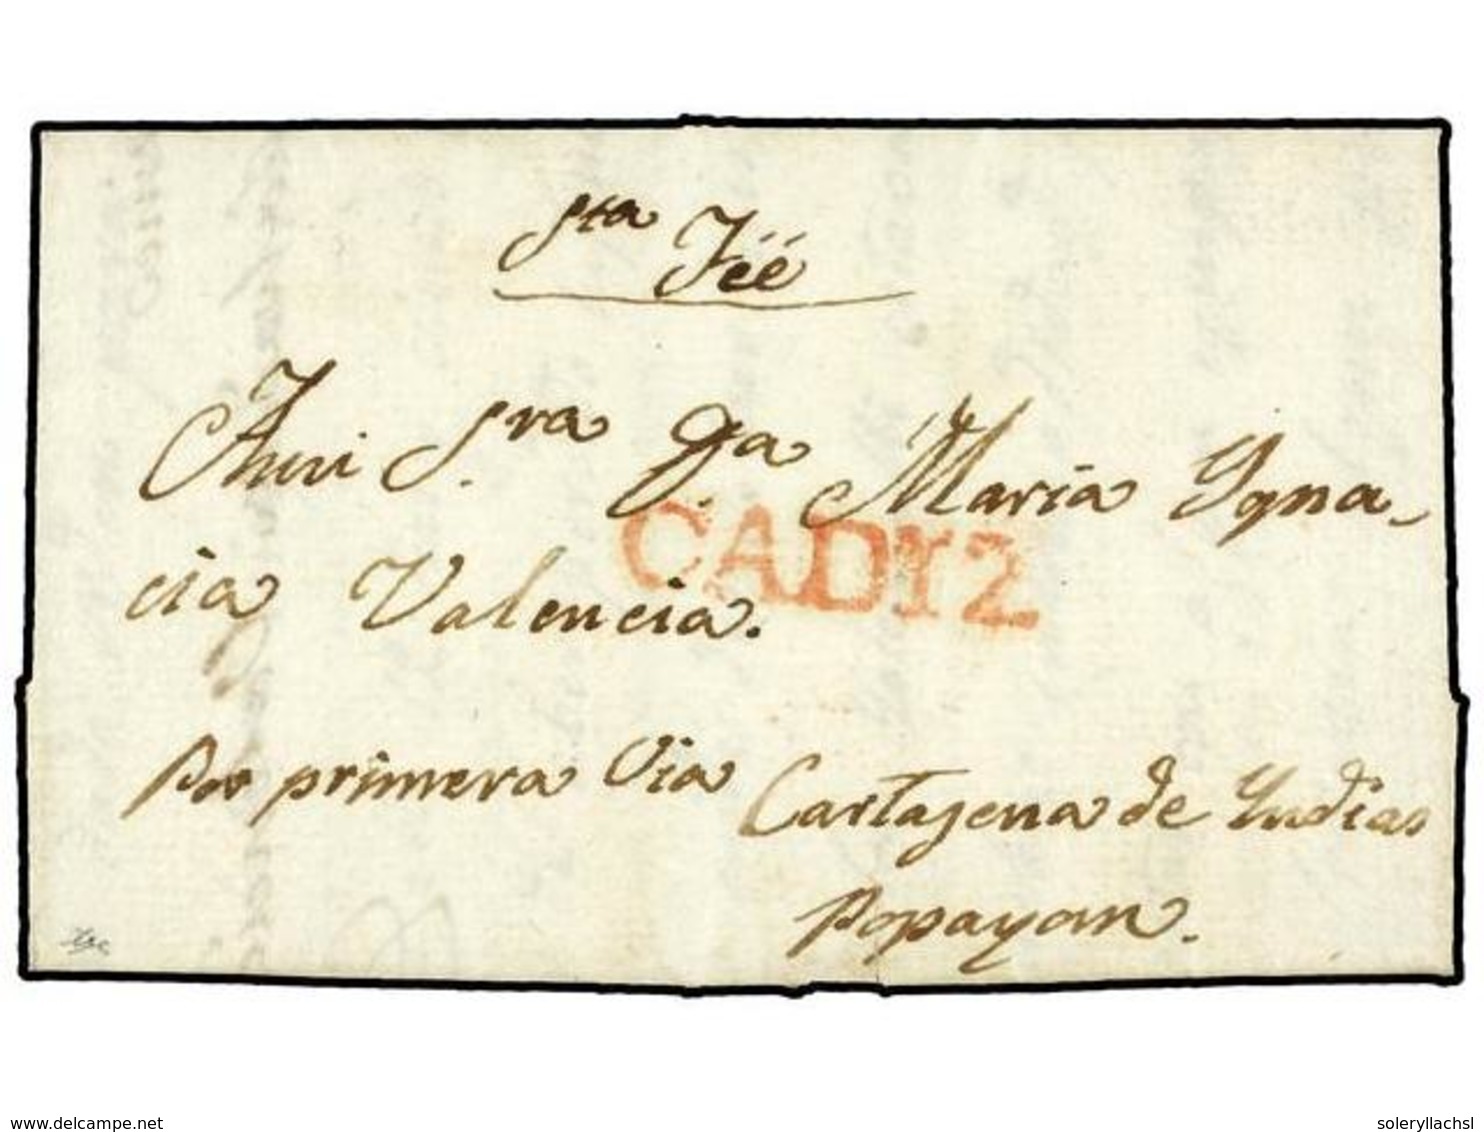 Sta Féé
A mi Sra Da Maria Ygna-
cia Valencia.
CADIZ
Por primera Via Cartajena de Yndias
Popayan.
delcampe.net
soleryllachsl